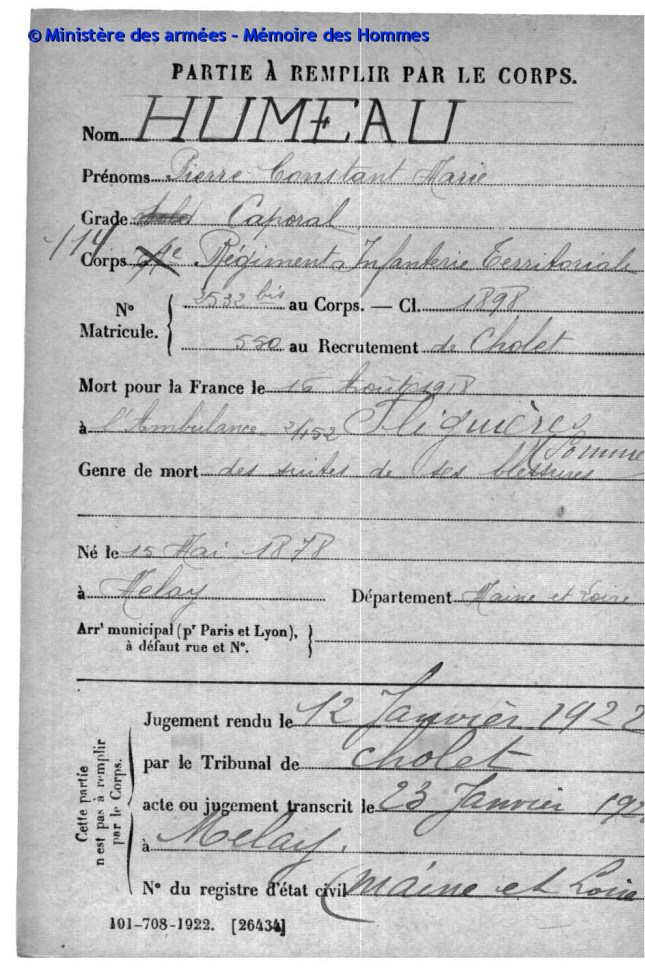 © Ministère des armées - Mémoire des Hommes
PARTIE À REMPLIR PAR LE CORPS.
Nom HUMEAU
Prénoms Pierre Constant Marie
Grade Caporal
114
Corps Régiment d'Infanterie Territoriale
N° Matricule. { 2532 bis au Corps. — Cl. 1898
550 au Recrutement de Cholet
Mort pour la France le 16 Août 1918
à l'Ambulance 2/152 Fliquières
(Somme
Genre de mort des suites de ses blessures
Né le 15 Mai 1878
à Melay Département Maine et Loire
Arrt municipal (pr Paris et Lyon), à défaut rue et N°. }
Cette partie n'est pas à remplir par le Corps.
Jugement rendu le 12 Janvier 1922
par le Tribunal de Cholet
acte ou jugement transcrit le 23 Janvier 192
à Melay.
N° du registre d'état civil (Maine et Loire
101-708-1922. [26434]